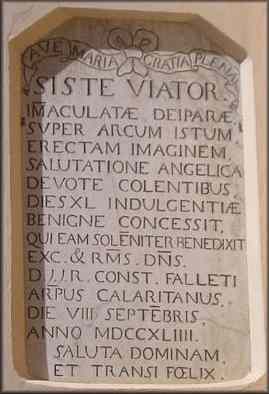 AVE MARIA GRATIA PLENA
SISTE VIATOR.
IM̅ACULATÆ DEIPARÆ
SVPER ARCUM ISTUM
ERECTAM IMAGINEM
SALUTATIONE ANGELICA
DEVOTE COLENTIBUS
DIES XL INDULGENTIÆ
BENIGNE CONCESSIT,
QUI EAM SOLEN̅ITER BENEDIXIT
EXC. & RM̅S. DN̅S.
D. J. J. R. CONST. FALLETI
ARPUS CALARITANUS.
DIE VIII SEPTE̅BRIS.
ANNO MDCCXLIIII.
SALUTA DOMINAM,
ET TRANSI FŒLIX.